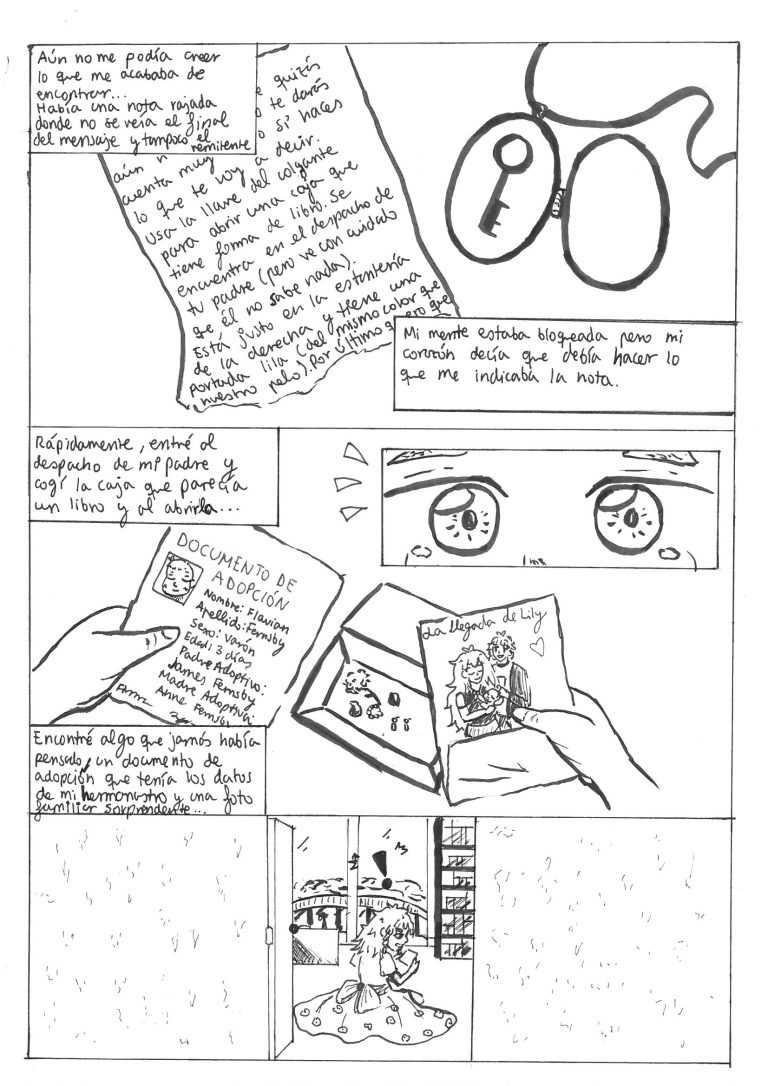 Aún no me podía creer
lo que me acababa de
encontrar...
Había una nota rajada
donde no se veía el final
del mensaje y tampoco el
remitente
quizás
te darás
si haces
aún n
cuenta muy
lo que te voy a decir.
Usa la llave del colgante
para abrir una caja que
tiene forma de libro. Se
encuentra en el despacho de
tu padre (pero ve con cuidado
que él no sabe nada).
Está justo en la estantería
de la derecha y tiene una
portada lila (del mismo color que
nuestro pelo). Por último quiero que
Mi mente estaba bloqueada pero mi
corazón decía que debía hacer lo
que me indicaba la nota.
Rápidamente, entré al
despacho de mi padre y
cogí la caja que parecía
un libro y al abrirla...
DOCUMENTO DE
ADOPCIÓN
Nombre: Flavian
Apellido: Fernsby
Sexo: Varón
Edad: 3 días
Padre Adoptivo:
James Fernsby
Madre Adoptiva:
Anne Fernsby
La llegada de Lily
Encontré algo que jamás había
pensado, un documento de
adopción que tenía los datos
de mi hermanastro y una foto
familiar sorprendente...
!